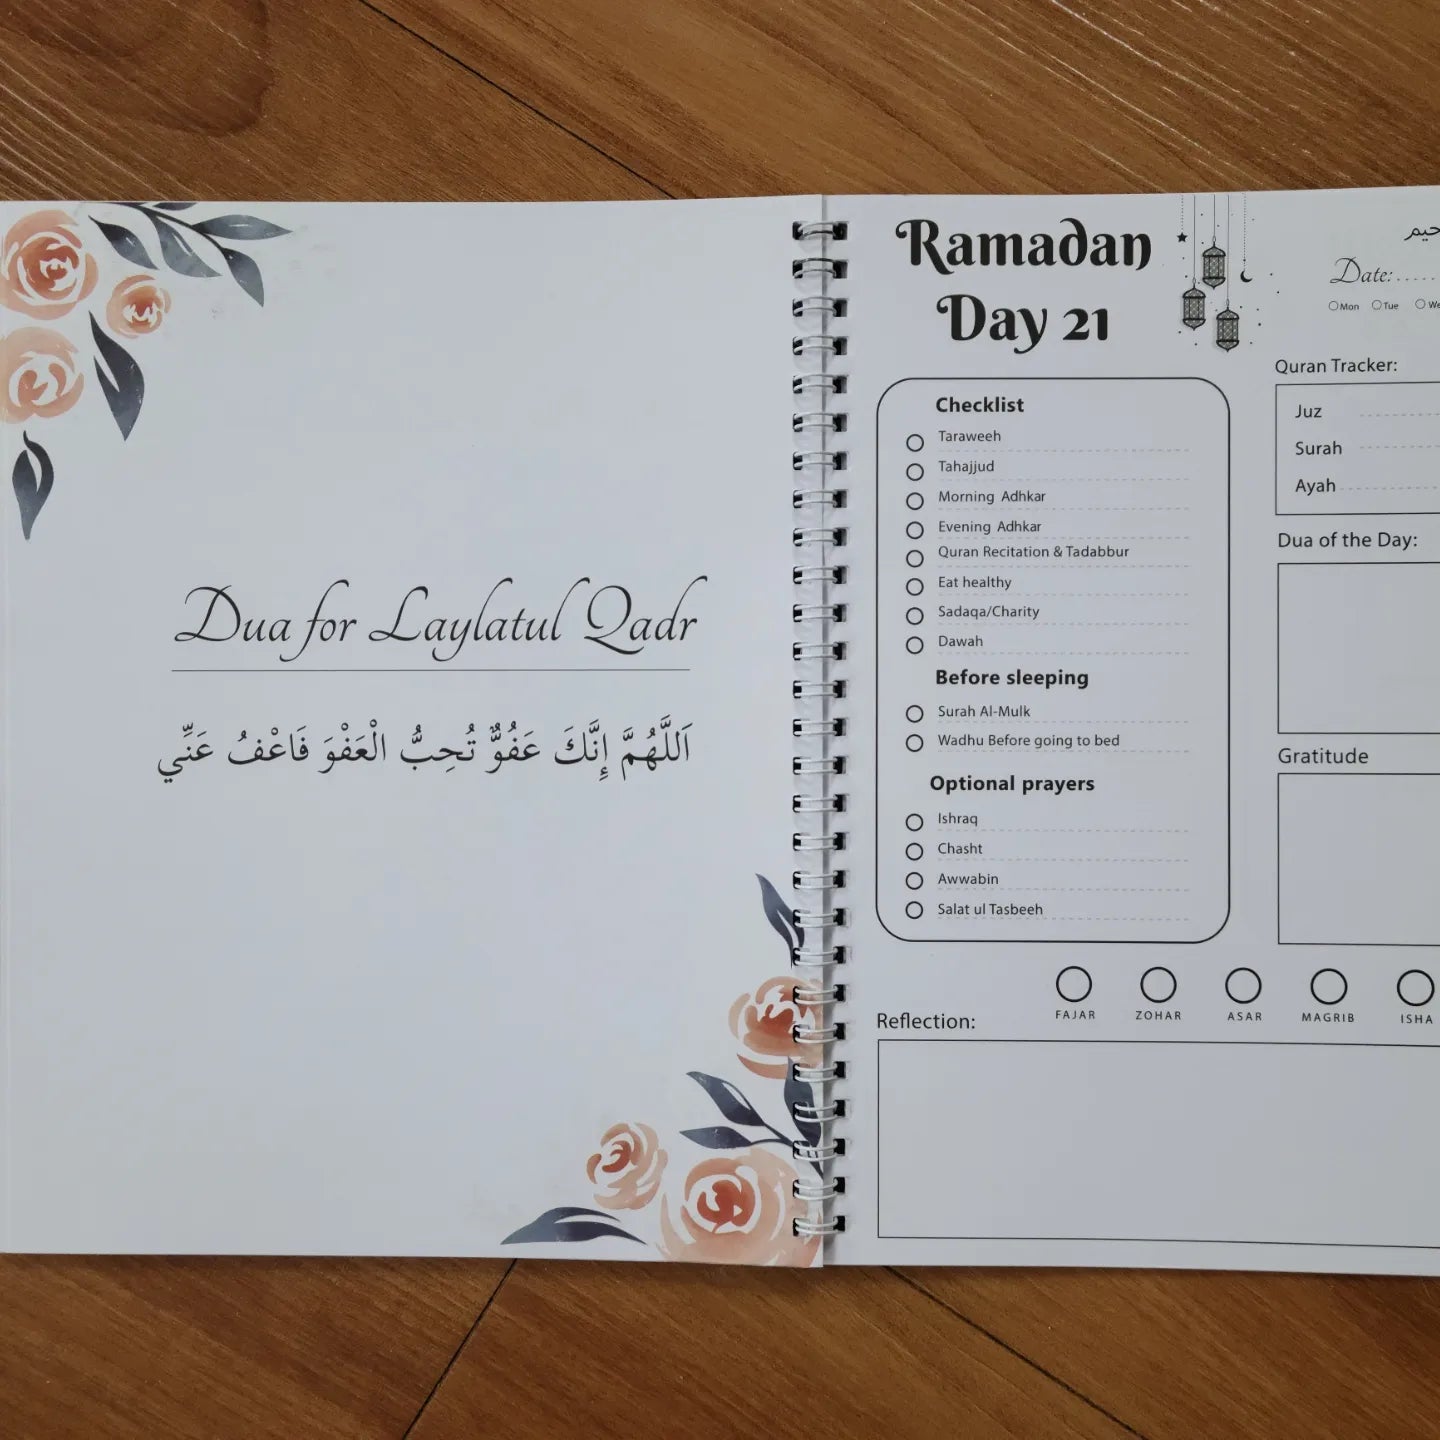 Dua for Laylatul Qadr
اَللَّهُمَّ إِنَّكَ عَفُوٌّ تُحِبُّ الْعَفْوَ فَاعْفُ عَنِّي
Ramadan
Day 21
Date:.....
Mon Tue
Checklist
Taraweeh
Tahajjud
Morning Adhkar
Evening Adhkar
Quran Recitation & Tadabbur
Eat healthy
Sadaqa/Charity
Dawah
Before sleeping
Surah Al-Mulk
Wadhu Before going to bed
Optional prayers
Ishraq
Chasht
Awwabin
Salat ul Tasbeeh
Quran Tracker:
Juz
Surah
Ayah
Dua of the Day:
Gratitude
FAJAR ZOHAR ASAR MAGRIB ISHA
Reflection: